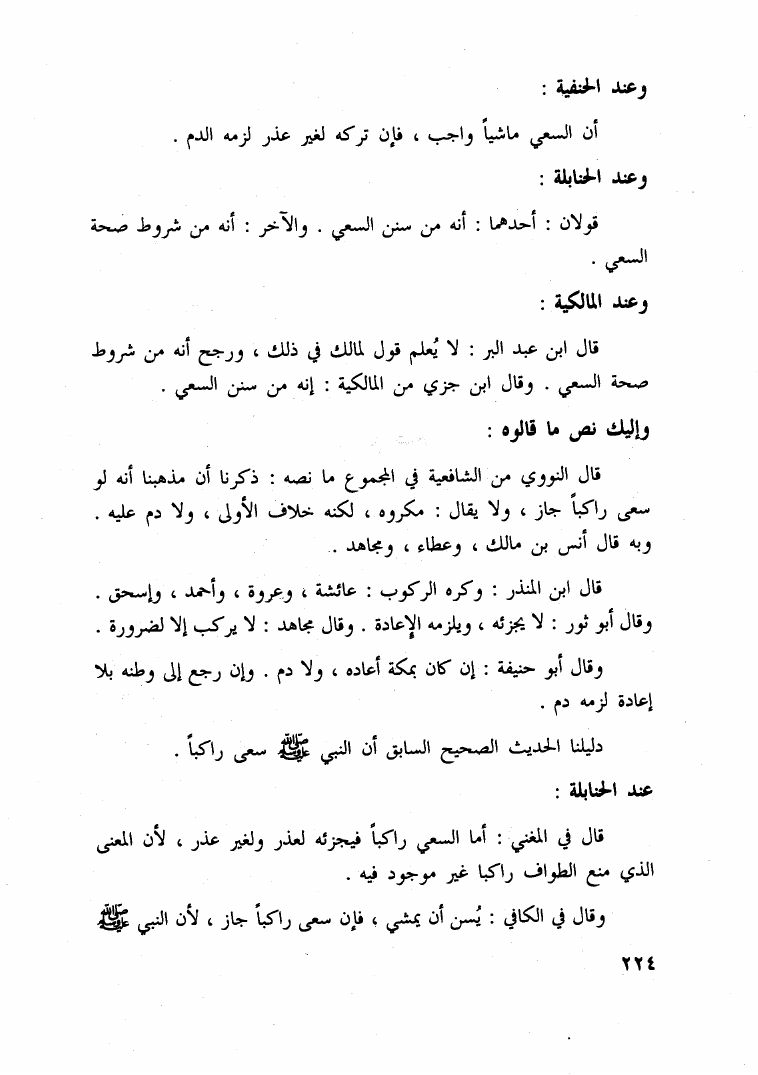 وعند الحنفية :
أن السعي ماشياً واجب ، فإن تركه لغير عذر لزمه الدم .
وعند الحنابلة :
قولان : أحدهما : أنه من سنن السعي . والآخر : أنه من شروط صحة
السعي .
وعند المالكية :
قال ابن عبد البر : لا يُعلم قول لمالك في ذلك ، ورجح أنه من شروط
صحة السعي . وقال ابن جزي من المالكية : إنه من سنن السعي .
وإليك نص ما قالوه :
قال النووي من الشافعية في المجموع ما نصه : ذكرنا أن مذهبنا أنه لو
سعى راكباً جاز ، ولا يقال : مكروه ، لكنه خلاف الأولى ، ولا دم عليه .
وبه قال أنس بن مالك ، وعطاء ، ومجاهد .
قال ابن المنذر : وكره الركوب : عائشة ، وعروة ، وأحمد ، وإسحق .
وقال أبو ثور : لا يجزئه ، ويلزمه الإعادة . وقال مجاهد : لا يركب إلا لضرورة .
وقال أبو حنيفة : إن كان بمكة أعاده ، ولا دم . وإن رجع إلى وطنه بلا
إعادة لزمه دم .
دليلنا الحديث الصحيح السابق أن النبي ﷺ سعى راكباً .
عند الحنابلة :
قال في المغني : أما السعي راكباً فيجزئه لعذر ولغير عذر ، لأن المعنى
الذي منع الطواف راكبا غير موجود فيه .
وقال في الكافي : يُسن أن يمشي ، فإن سعى راكباً جاز ، لأن النبي ﷺ
٢٢٤